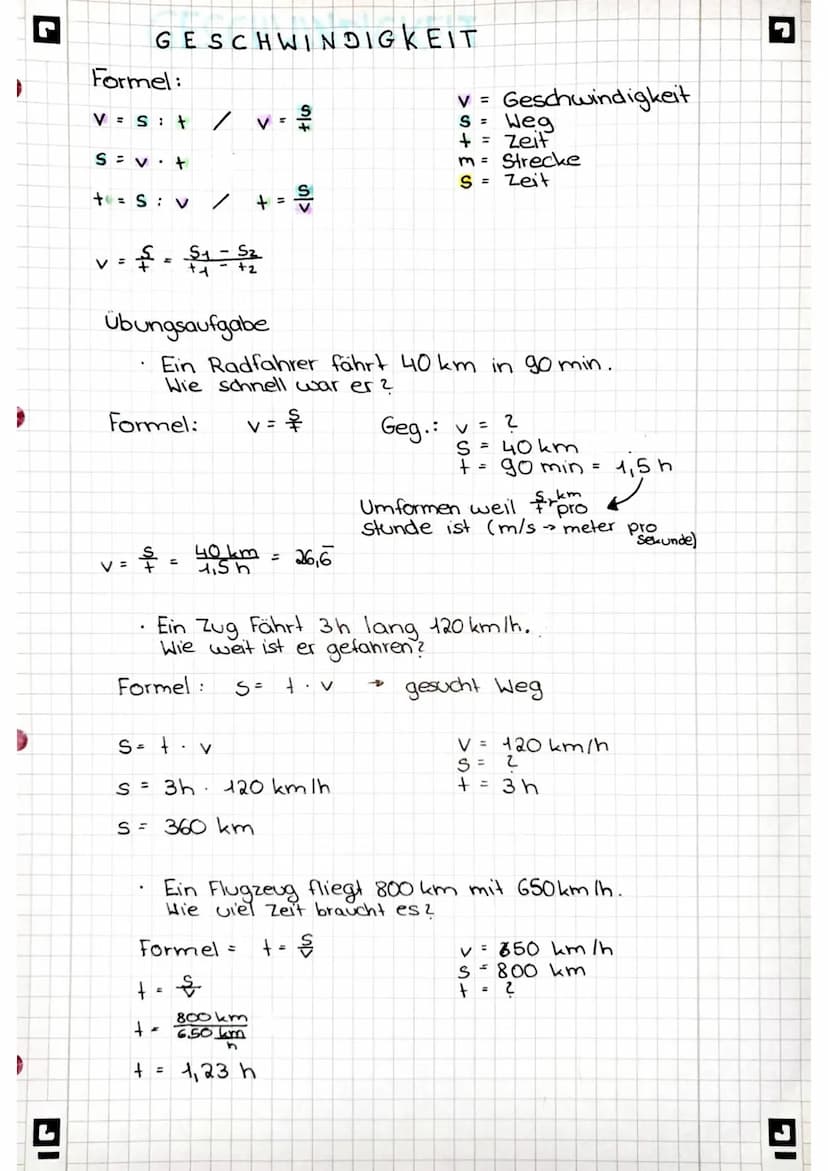 GESCHWINDIGKEIT
Formel:
v = s : t / v = s/t
s = v · t
t = s : v / t = s/v
v = Geschwindigkeit
s = Weg
t = Zeit
m = Strecke
s = Zeit
v = s/t = (s1 - s2)/(t1 - t2)
Übungsaufgabe
· Ein Radfahrer fährt 40 km in 90 min.
Wie schnell war er?
Formel: v = s/t
Geg.: v = ?
s = 40 km
t = 90 min = 1,5 h
Umformen weil s/t, km pro
stunde ist (m/s → meter pro sekunde)
v = s/t = 40 km/1,5 h = 26,6̅
· Ein Zug Fährt 3h lang 120 km/h.
Wie weit ist er gefahren?
Formel: s = t · v → gesucht Weg
s = t · v
s = 3h · 120 km/h
s = 360 km
v = 120 km/h
s = ?
t = 3 h
· Ein Flugzeug fliegt 800 km mit 650 km/h.
Wie viel Zeit braucht es?
Formel = t = s/v
t = s/v
t = 800 km/650 km/h
t = 1,23 h
v = 650 km/h
s = 800 km
t = ?